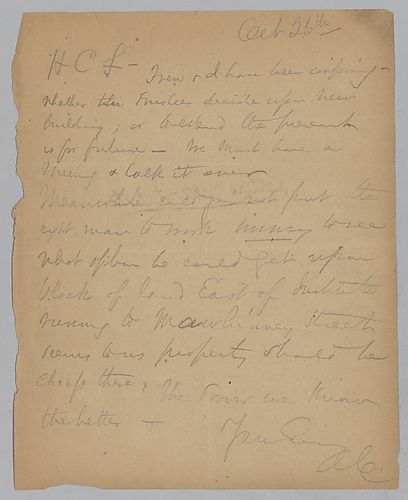 Oct 26th
H C F - Frew & I have been conferring -
whether the Trustees decide upon new
building, or to extend the present
is for future - We must have a
meeting & talk it over
Meanwhile could you not put the
right man to work to see
what option he could get upon
block of land East of Institute
running to Mawhinney Street
seems to us property should be
cheap there, The sooner we know
the better -
Yours
AC